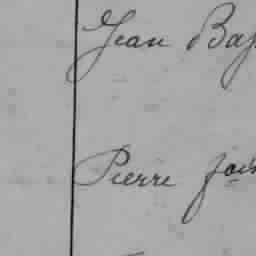 Jean Bap
Pierre